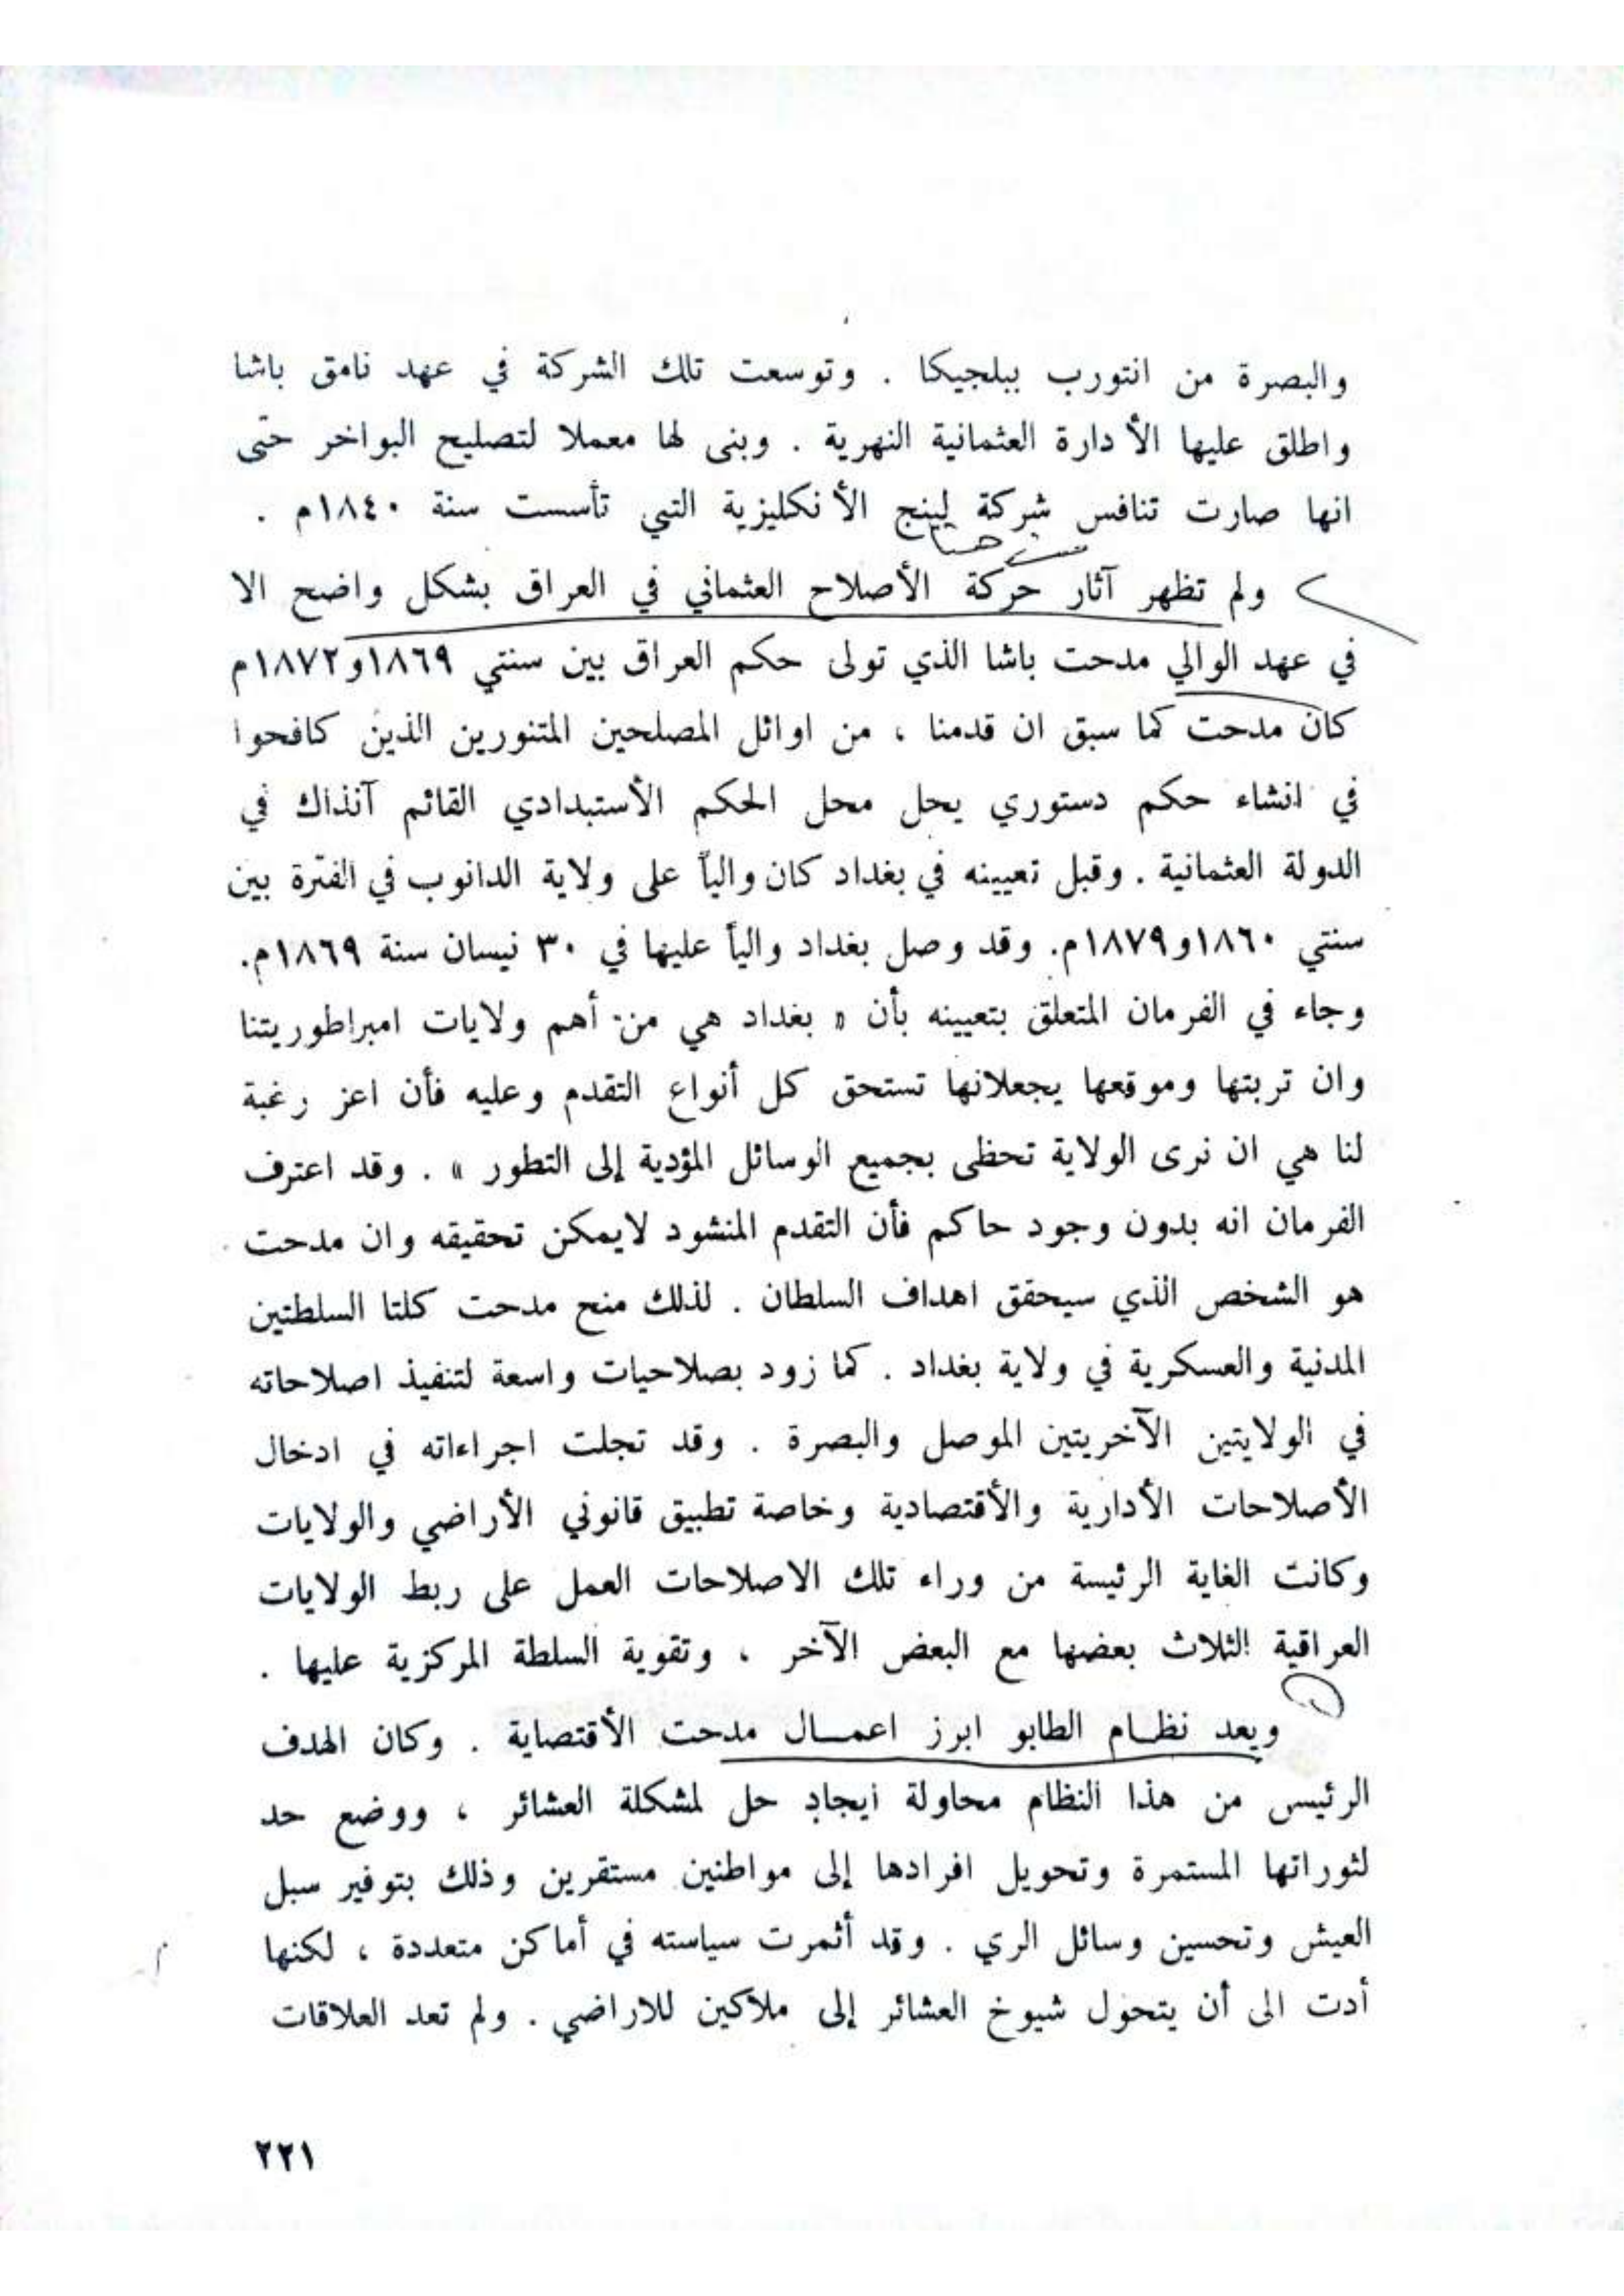 والبصرة من انتورب ببلجيكا . وتوسعت تلك الشركة في عهد نامق باشا
واطلق عليها الأدارة العثمانية النهرية . وبنى لها معملا لتصليح البواخر حتى
انها صارت تنافس شركة لينج الأنكليزية التي تأسست سنة ١٨٤٠م .
ولم تظهر آثار حركة الأصلاح العثماني في العراق بشكل واضح الا
في عهد الوالي مدحت باشا الذي تولى حكم العراق بين سنتي ١٨٦٩و١٨٧٢م
كان مدحت كما سبق ان قدمنا ، من اوائل المصلحين المتنورين الذين كافحوا
في انشاء حكم دستوري يحل محل الحكم الأستبدادي القائم آنذاك في
الدولة العثمانية . وقبل تعيينه في بغداد كان والياً على ولاية الدانوب في الفترة بين
سنتي ١٨٦٠و١٨٧٩م. وقد وصل بغداد والياً عليها في ٣٠ نيسان سنة ١٨٦٩م.
وجاء في الفرمان المتعلق بتعيينه بأن « بغداد هي من أهم ولايات امبراطوريتنا
وان تربتها وموقعها يجعلانها تستحق كل أنواع التقدم وعليه فأن اعز رغبة
لنا هي ان نرى الولاية تحظى بجميع الوسائل المؤدية إلى التطور » . وقد اعترف
الفرمان انه بدون وجود حاكم فأن التقدم المنشود لايمكن تحقيقه وان مدحت
هو الشخص الذي سيحقق اهداف السلطان . لذلك منح مدحت كلتا السلطتين
المدنية والعسكرية في ولاية بغداد . كما زود بصلاحيات واسعة لتنفيذ اصلاحاته
في الولايتين الآخريتين الموصل والبصرة . وقد تجلت اجراءاته في ادخال
الأصلاحات الأدارية والأقتصادية وخاصة تطبيق قانوني الأراضي والولايات
وكانت الغاية الرئيسة من وراء تلك الاصلاحات العمل على ربط الولايات
العراقية الثلاث بعضها مع البعض الآخر ، وتقوية السلطة المركزية عليها .
ويعد نظـام الطابو ابرز اعمـــال مدحت الأقتصاية . وكان الهدف
الرئيس من هذا النظام محاولة أيجاد حل لمشكلة العشائر ، ووضع حد
لثوراتها المستمرة وتحويل افرادها إلى مواطنين مستقرين وذلك بتوفير سبل
العيش وتحسين وسائل الري . وقد أثمرت سياسته في أماكن متعددة ، لكنها
أدت الى أن يتحول شيوخ العشائر إلى ملاكين للاراضي . ولم تعد العلاقات
٢٢١